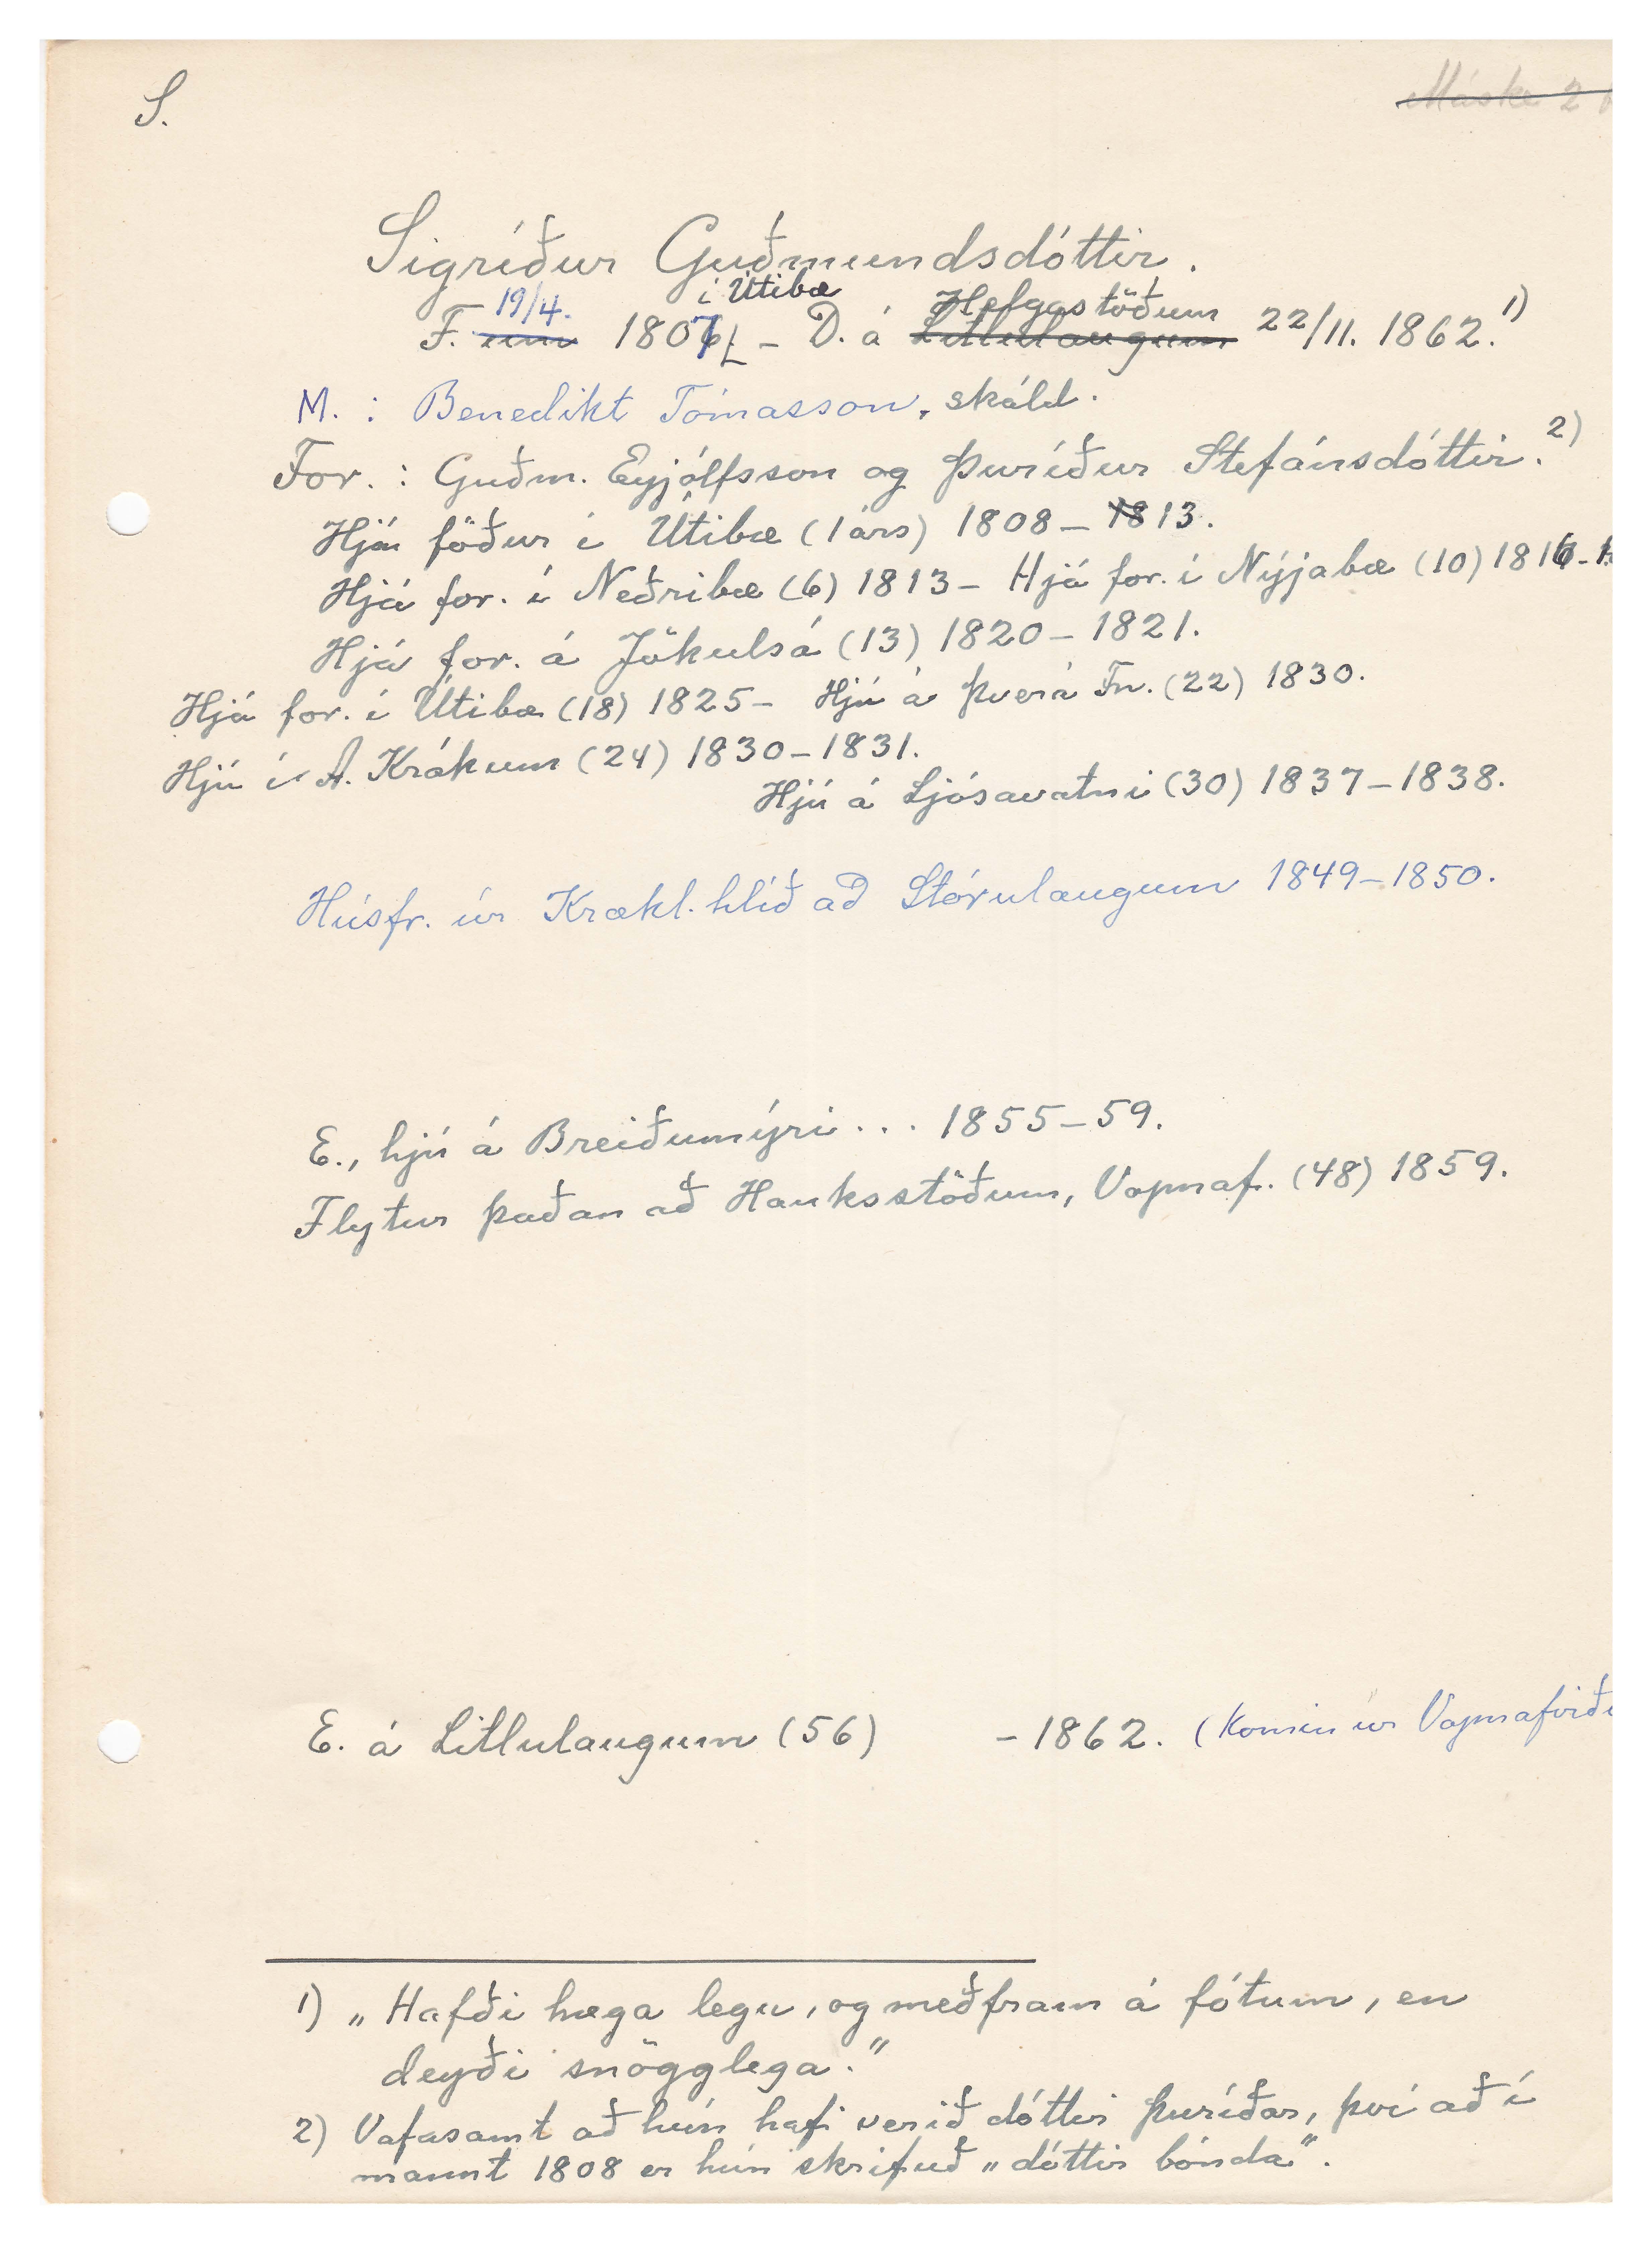 S.
Máske 2
Sigríður Guðmundsdóttir.
19/4. í Útibæ Helgastöðum
F. um 1807 - D. á Litlulaugum 22/11. 1862. 1)
M. : Benedikt Tómasson, skáld.
For. : Guðm. Eyjólfsson og Þuríður Stefánsdóttir. 2)
Hjá föður í Útibæ (1 árs) 1808 - 1813.
Hjá for. í Neðribæ (6) 1813 - Hjá for. í Nýjabæ (10) 1816 -
Hjá for. á Jökulsá (13) 1820 - 1821.
Hjá for. í Útibæ (18) 1825 - Hjú á Þverá Fn. (22) 1830.
Hjú í A. Krókum (24) 1830 - 1831.
Hjú á Ljósavatni (30) 1837 - 1838.
Húsfr. úr Krækl.hlíð að Stórulaugum 1849 - 1850.
E., hjú á Breiðumýri . . . 1855 - 59.
Flytur þaðan að Hauksstöðum, Vopnaf. (48) 1859.
E. á Litlulaugum (56) - 1862. (Komin úr Vopnafirði
1) „Hafði hæga legu, og meðfram á fótum, en
deyði snögglega."
2) Vafasamt að hún hafi verið dóttir Þuríðar, því að í
mannt 1808 er hún skrifuð „dóttir bónda".